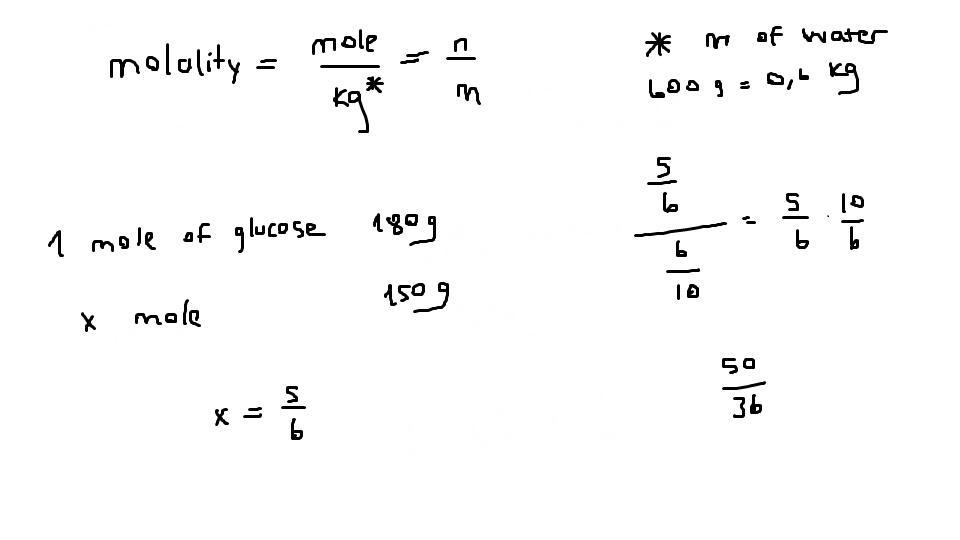 molality = mole / kg* = n / m
* m of water
600 g = 0,6 kg
1 mole of glucose 180g
x mole 150g
x = 5/6
5/6 / 6/10 = 5/6 · 10/6
50/36